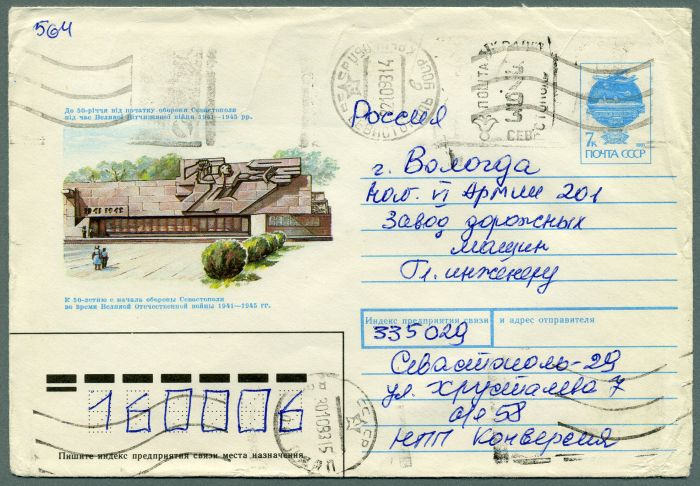 564
До 50-річчя від початку оборони Севастополя
під час Великої Вітчизняної війни 1941—1945 рр.
1941 1942
К 50-летию с начала обороны Севастополя
во время Великой Отечественной войны 1941—1945 гг.
ПОШТА
СЕВАСТОПОЛЬ
7к
ПОЧТА СССР
Россия
г. Вологда
Наб. VI Армии 201
Завод дорожных
машин
Гл. инженеру
Индекс предприятия связи и адрес отправителя
335029
Севастополь-29
ул. Хрусталева 7
а/я 58
НПП Конверсия
160006
Пишите индекс предприятия связи места назначения